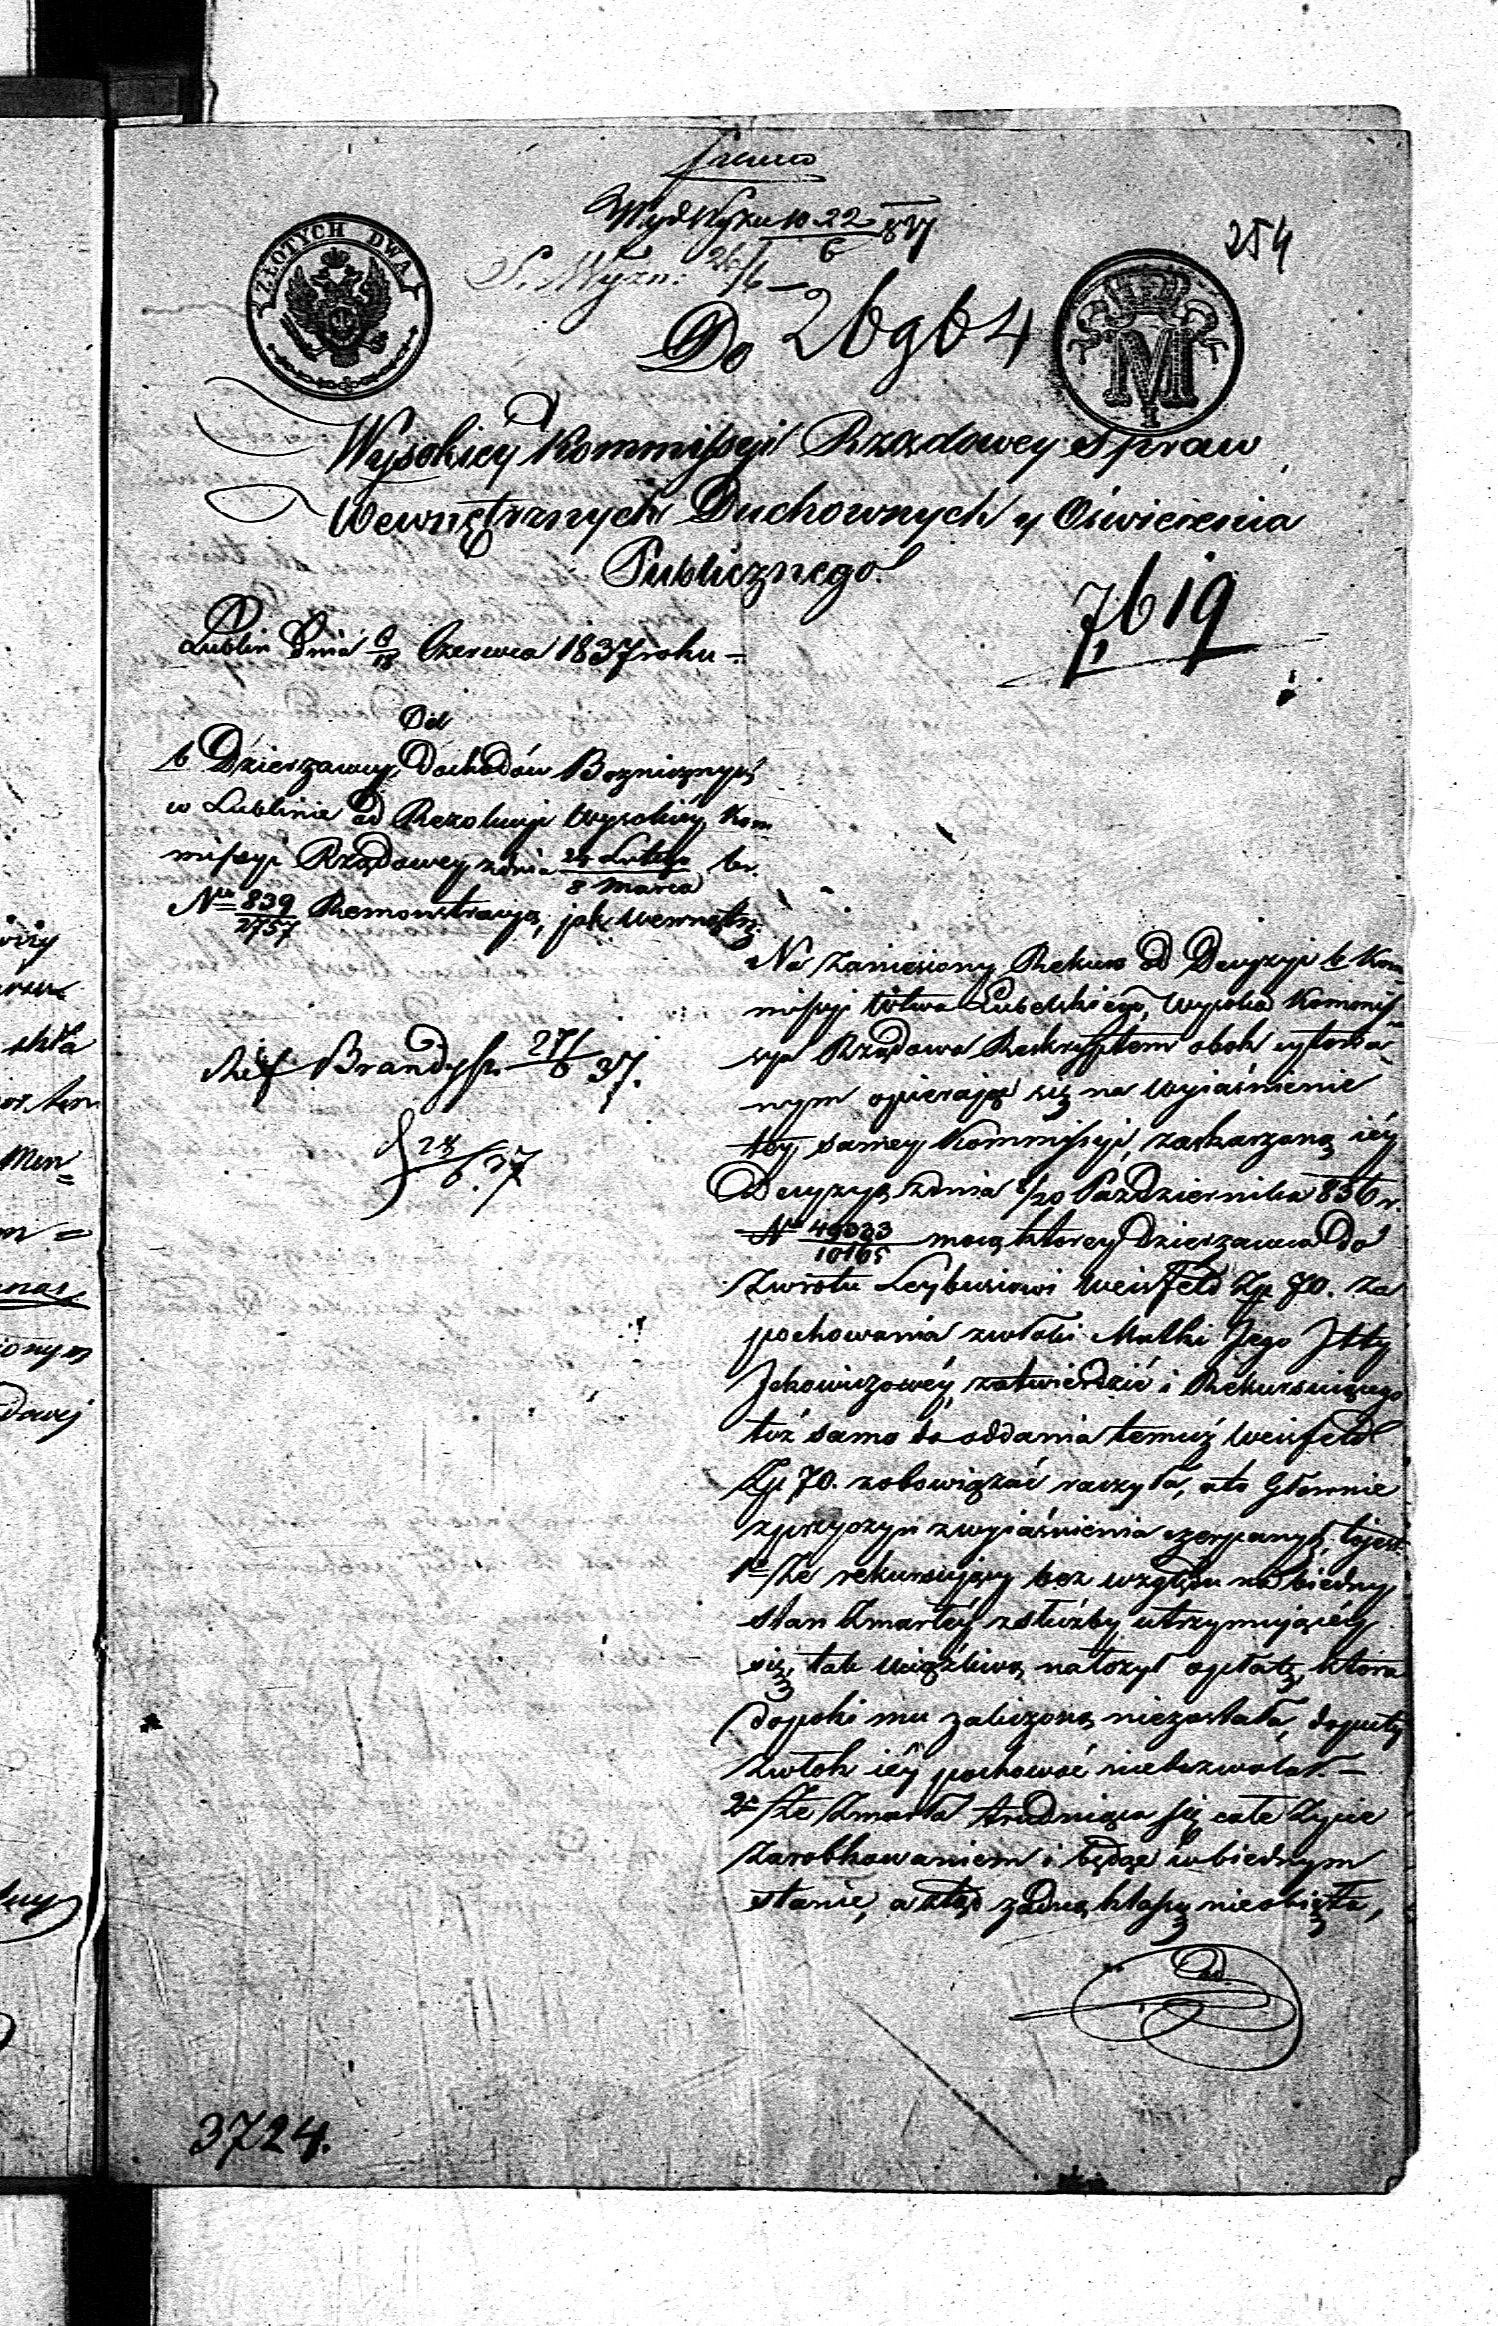 franco
Wyd Wyzn 10. 22/6 837
S. Wyzn: 26/6
254
ZŁOTYCH DWA
Do 26964
M
I
Wysokiey Kommissyi Rządowey Spraw
Wewnętrznych Duchownych y Oświecenia
Publicznego.
7619
Lublin Dnia 6/18 Czerwca 1837 roku
Od
b Dzierzawcy Dochodów Bozniczych
w Lublinie od Rezolucyi Wysokiey Kom
missyi Rządowey z dnia 24 Lutego / 8 Marca b.r.
Nro 839/2757 Remonstracya, jak wewnątrz.
Ref Brandys 27/6 37.
28/6.37
Na zaniesiony Rekurs od Decyzyi b Kom=
missyi Wtwa Lubelskiego, Wysoka Kommis=
sya Rządowa Reskryptem obok cytowa=
nym opierając się na wyiaśnienie
tey samey Kommissyi, zaskarzoną iéy
Decyzyą z dnia 8/20 Pazdziernika 836 r.
Nro 49033/10165 mocą ktorey Dzierzawca do
zwrotu Leybusiowi Weisfeld Zp 70. za
pochowania zwłoki Matki Jego Itty
Jckowiczowéy, zatwierdzić i Rekursuiącego
toż samo do oddania temuż Weisfeld
Zp 70. zobowiązać raczyła, a to głownie
z przyczyn z wyiaśnienia czerpanych, to jest
1o/ Że rekursujący bez względu na biedny
stan Zmarłéy z służby utrzymującéy
się, tak uciążliwą nałozył opłatę, ktora
dopoki mu zaliczoną niezostała, dopoty
zwłok iéy pochować niedozwalał. —
2o/ Że Zmarła trudniąca się całe życie
zarobkowaniem i będąc w biednym
stanie, a ztąd żadną klassą nieobięta,
3724.